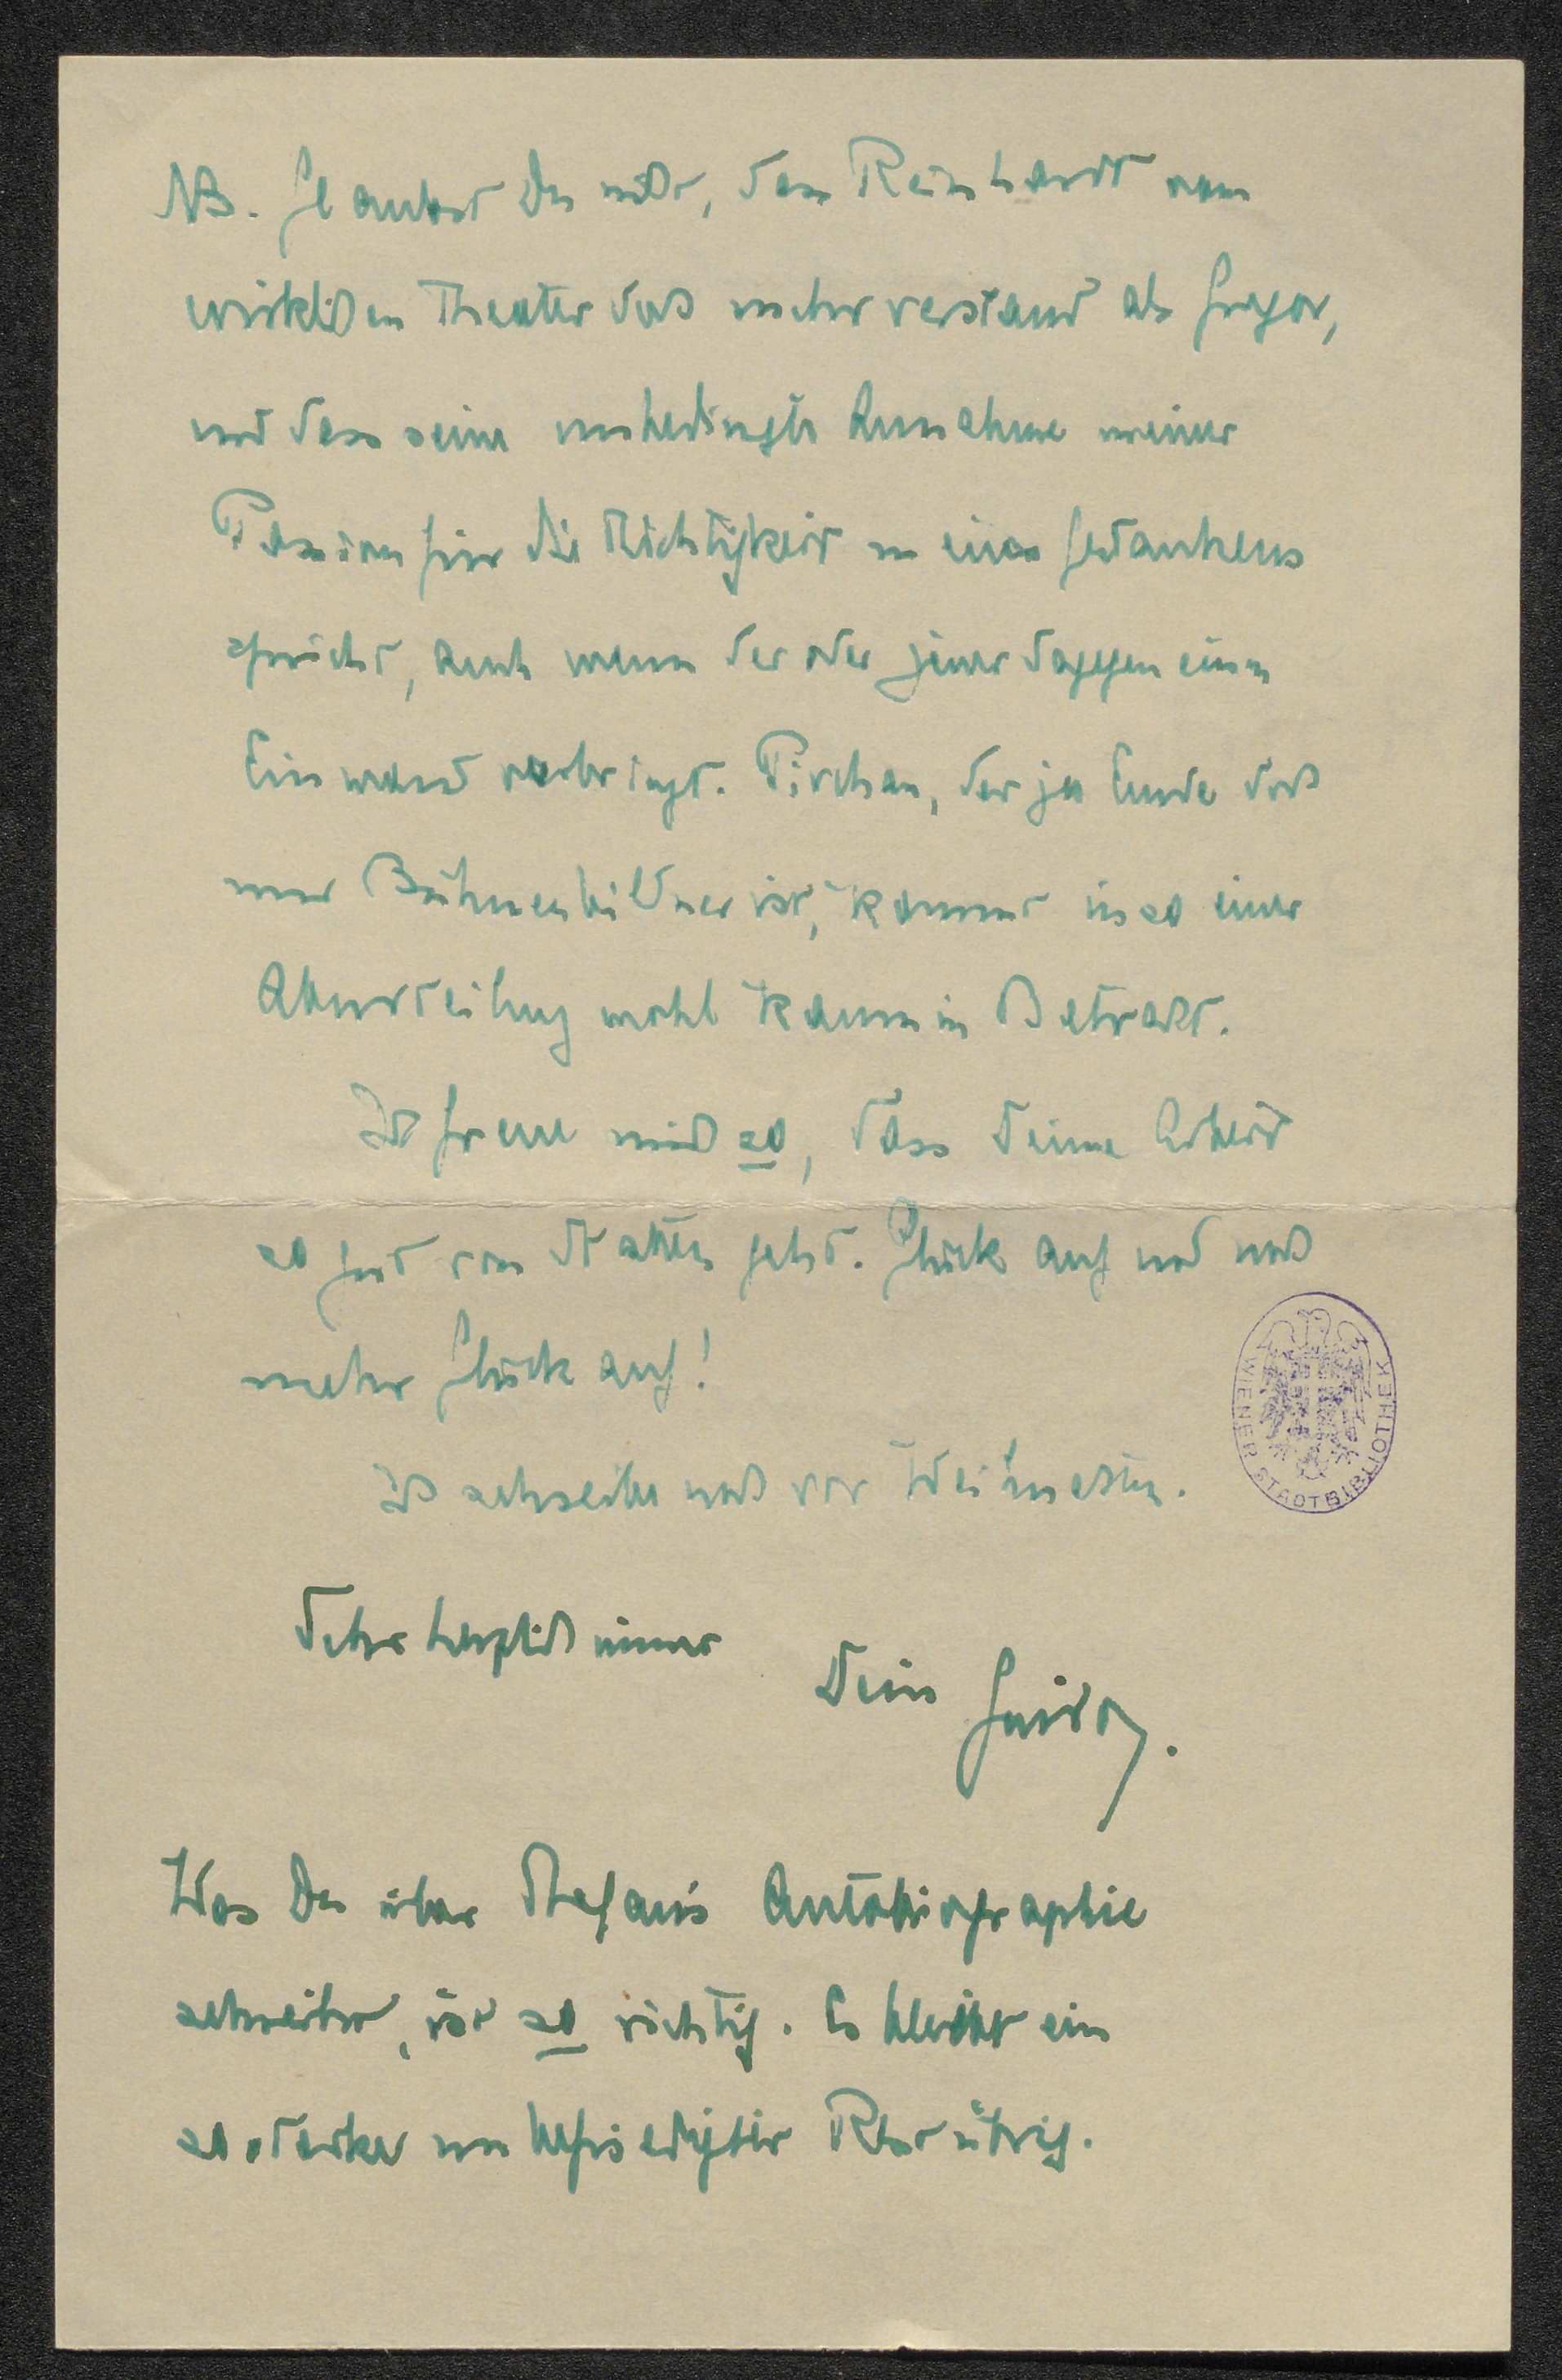 NB. Glaubst Du nicht, dass Reinhardt vom
wirklichen Theater doch mehr verstand als Gregor,
und dass seine unbedingte Annahme meiner
Passion für die Richtigkeit meines Gedankens
spricht, auch wenn der oder jener dagegen einen
Einwand vorbringt. Pirchan, der ja Ende doch
nur Bühnenbildner ist, kommt in so einer
Aburteilung wohl kaum in Betracht.
Ich freue mich so, dass Deine Arbeit
so gut von Statten geht. Glück auf und noch
mehr Glück auf!
Ich schreibe noch vor Weihnachten.
Sehr herzlich immer
Dein Guido.
WIENER STADTBIBLIOTHEK
Was Du über Stefan's Autobiographie
schreibst, ist so richtig. Es bleibt ein
so starker unbefriedigter Rest übrig.